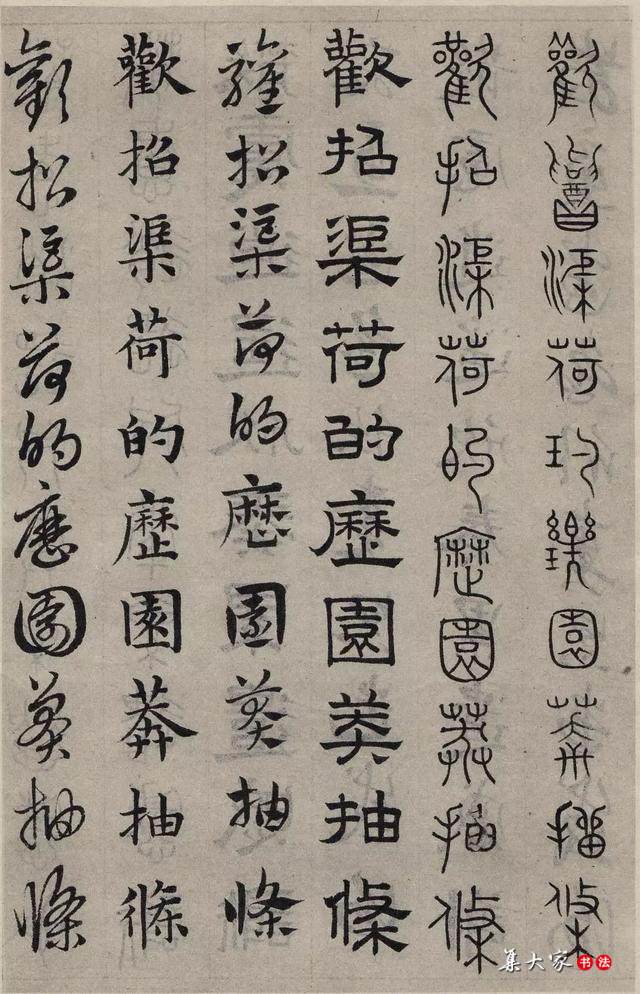 歡招渠荷的歷園莽抽條
歡招渠荷的歷園莽抽條
歡招渠荷的歷園莽抽條
歡招渠荷的歷園莽抽條
歡招渠荷的歷園莽抽條
歡招渠荷的歷園莽抽條
集大家书法